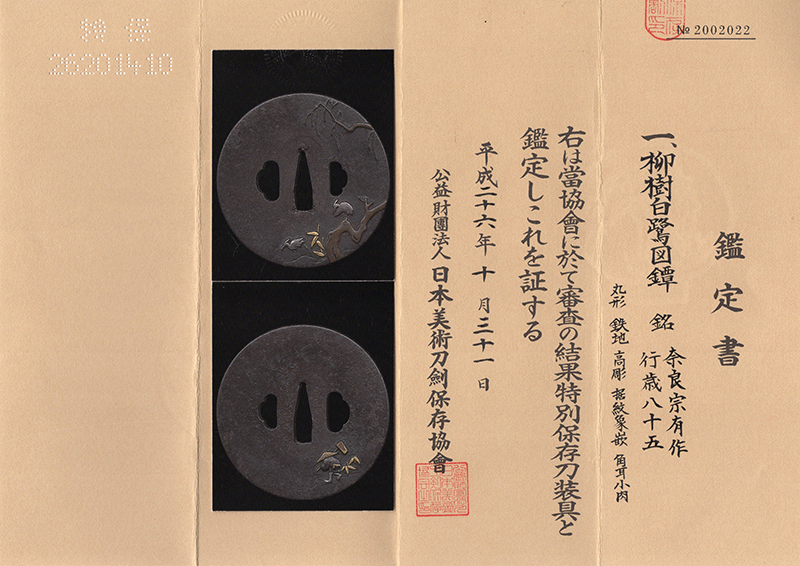 № 2002022
鑑定書
一、柳樹白鷺図鐔 銘 奈良宗有作
行歳八十五
丸形 鉄地 高彫 据紋象嵌 角耳小肉
右は當協會に於て審査の結果特別保存刀装具と
鑑定しこれを証する
平成二十六年 十 月三十一 日
公益財團法人 日本美術刀劍保存協會
26201410